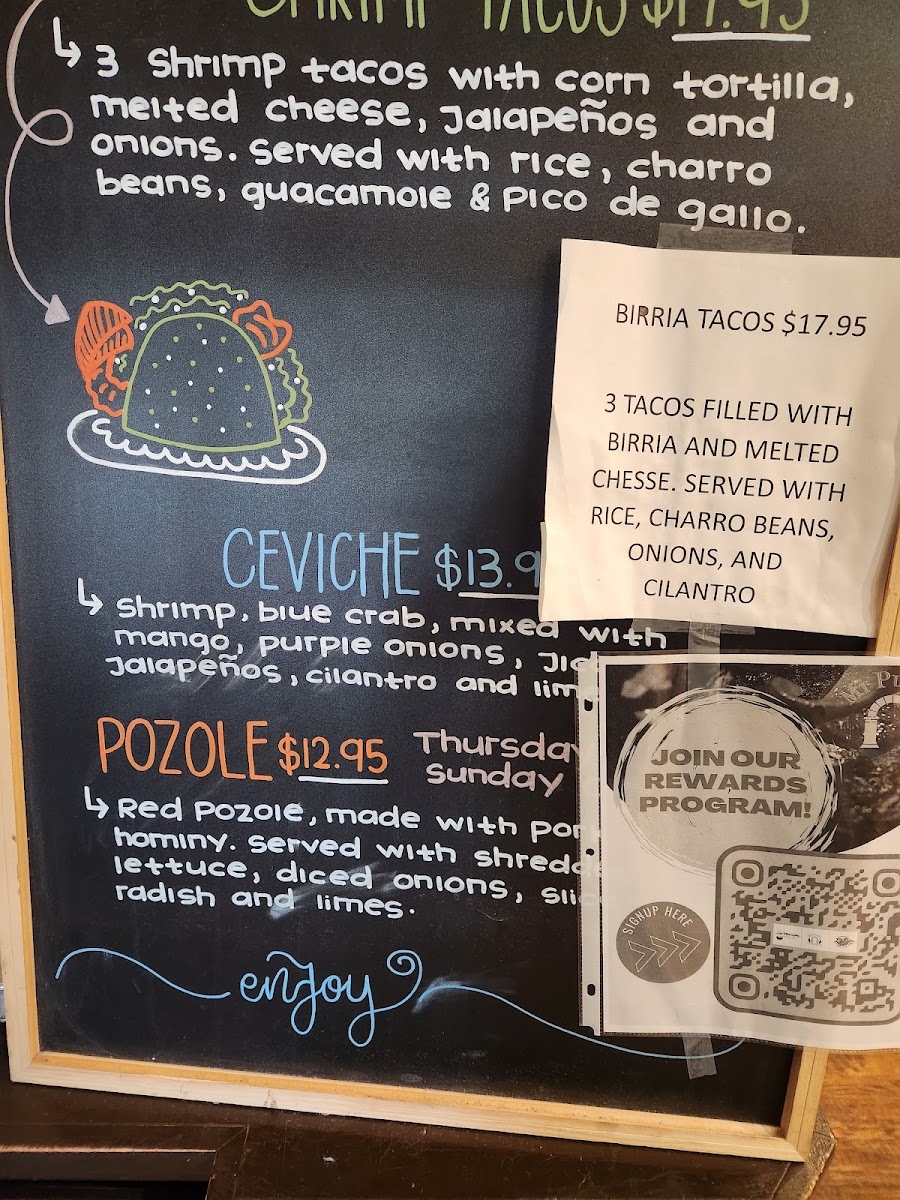 SHRIMP TACOS $17.95
↳ 3 shrimp tacos with corn tortilla,
melted cheese, jalapeños and
onions. served with rice, charro
beans, guacamole & pico de gallo.
BIRRIA TACOS $17.95
3 TACOS FILLED WITH
BIRRIA AND MELTED
CHESSE. SERVED WITH
RICE, CHARRO BEANS,
ONIONS, AND
CILANTRO
CEVICHE $13.9
↳ shrimp, blue crab, mixed with
mango, purple onions,
jalapeños, cilantro and
POZOLE $12.95
Thursday
sunday
↳ Red Pozole, made with
hominy. served with
lettuce, diced onions,
radish and limes.
enjoy
JOIN OUR
REWARDS
PROGRAM!
SIGNUP HERE